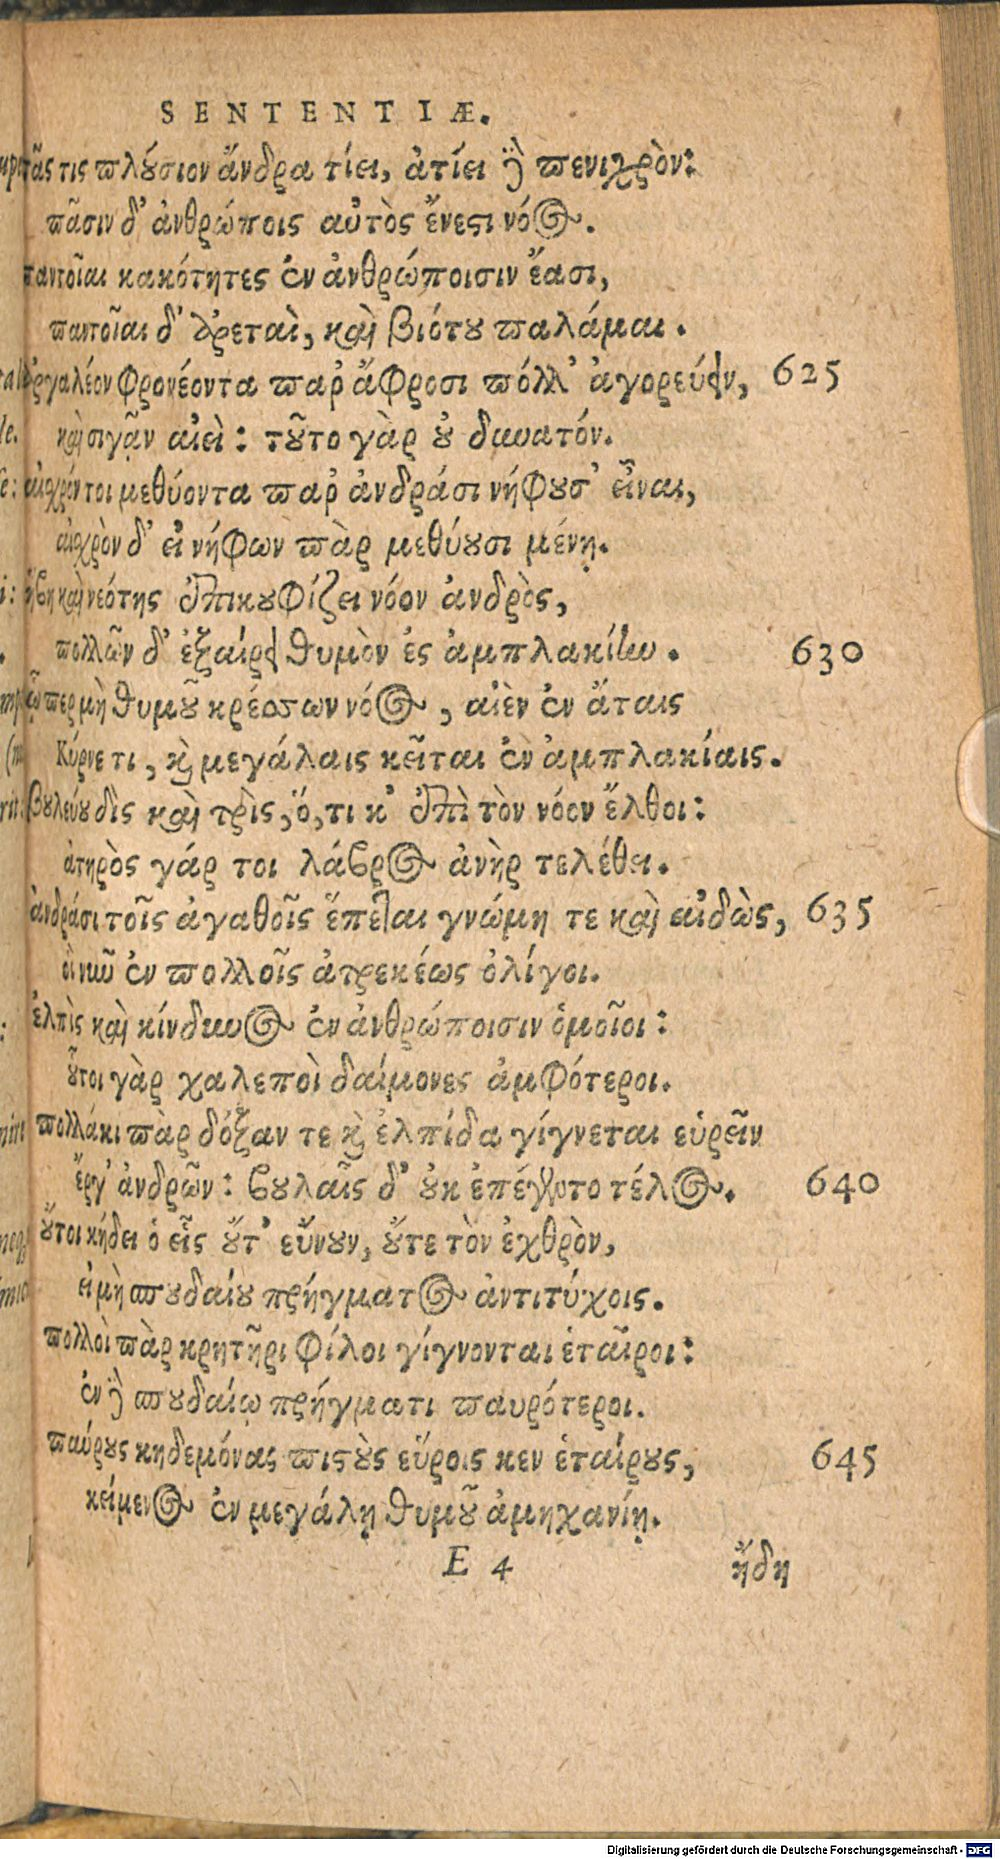 SENTENTIÆ.
πᾶς τις πλύσιον ἄνδρα τίει, ἀτίει δὲ πενιχρὸν:
πᾶσιν δ' ἀνθρώποις αὐτὸς ἔνεςι νόος.
παντοῖαι κακότητες ἐν ἀνθρώποισιν ἔασι,
παντοῖαι δ' ἀρεταὶ, καὶ βιότȣ παλάμαι.
ἀργαλέον φρονέοντα παρ' ἄφροσι πόλλ' ἀγορεύειν, 625
καὶ σιγᾶν αἰεὶ: τȣ͂το γὰρ ȣ̓ δυνατόν.
αἰσχρόν τοι μεθύοντα παρ' ἀνδράσι νήφȣσ' εἶναι,
αἰσχρὸν δ' εἰ νήφων πὰρ μεθύȣσι μένῃ.
ἥβη καὶ νεότης ἐπικȣφίζει νόον ἀνδρὸς,
πολλῶν δ' ἐξαίρει θυμὸν ἐς ἀμπλακίην. 630
ᾧπερ μὴ θυμȣ͂ κρέσσων νόος, αἰὲν ἐν ἄταις
Κύρνε τι, καὶ μεγάλαις κεῖται ἐν ἀμπλακίαις.
βȣλεύȣ δὶς καὶ τρὶς, ὅ,τι κ' ἐπὶ τὸν νόον ἔλθοι:
ἀτηρὸς γάρ τοι λάβρος ἀνὴρ τελέθει.
ἀνδράσι τοῖς ἀγαθοῖς ἕπεται γνώμη τε καὶ αἰδὼς, 635
οἳ νῦν ἐν πολλοῖς ἀτρεκέως ὀλίγοι.
ἐλπὶς καὶ κίνδυνος ἐν ἀνθρώποισιν ὁμοῖοι:
ȣ̓͂τοι γὰρ χαλεποὶ δαίμονες ἀμφότεροι.
πολλάκι πὰρ δόξαν τε καὶ ἐλπίδα γίγνεται εὑρεῖν
ἔργ' ἀνδρῶν: βȣλαῖς δ' ȣ̓κ ἐπέγεντο τέλος. 640
ȣ̓́τοι κήδει ὁ εἷς ȣ̓́τ' εὔνȣν, ȣ̓́τε τὸν ἐχθρὸν,
εἰ μὴ σπȣδαίȣ πρήγματος ἀντιτύχοις.
πολλοὶ πὰρ κρητῆρι φίλοι γίγνονται ἑταῖροι:
ἐν δὲ σπȣδαίῳ πρήγματι παυρότεροι.
παύρȣς κηδεμόνας πιςȣ̀ς εὕροις κεν ἑταίρȣς, 645
κείμενος ἐν μεγάλῃ θυμȣ͂ ἀμηχανίῃ.
E 4 ἤδη
Digitalisierung gefördert durch die Deutsche Forschungsgemeinschaft - DFG